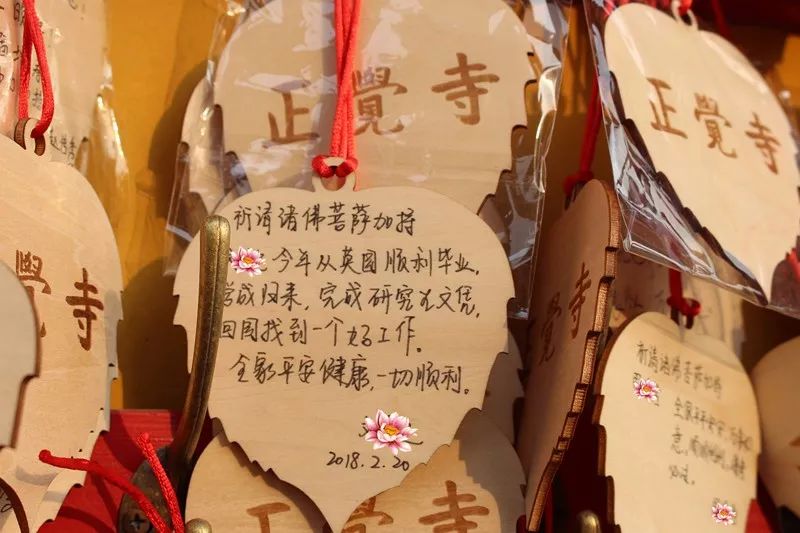 正覺寺
正覺寺
祈请诸佛菩萨加持
今年从英国顺利毕业,
学成归来,完成研究生文凭,
回国找到一个好工作。
全家平安健康,一切顺利。
2018.2.20
覺寺
覺寺
祈请诸佛菩萨加持
全家平平安安,
意,顺顺利利,
正覺寺